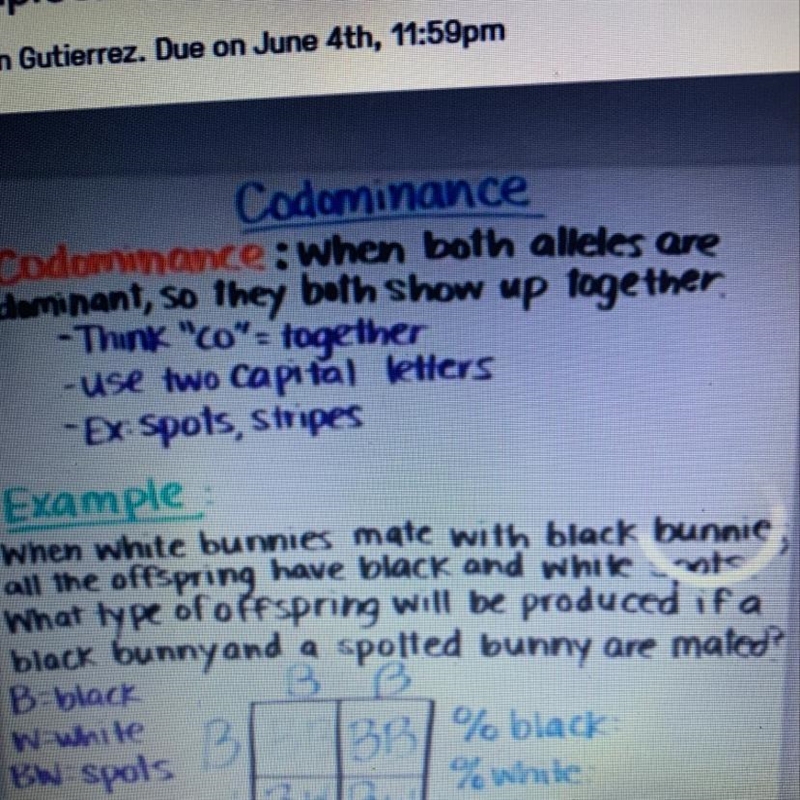 n Gutierrez. Due on June 4th, 11:59pm
Codominance
Codominance: When both alleles are
dominant, so they both show up together.
-Think "co" = together
-use two capital letters
-Ex: spots, stripes
Example:
When white bunnies mate with black bunnie,
all the offspring have black and white
What type of offspring will be produced if a
black bunny and a spotted bunny are mated?
B=black
B B
W=white
B BB
% black:
BW=spots
% white: